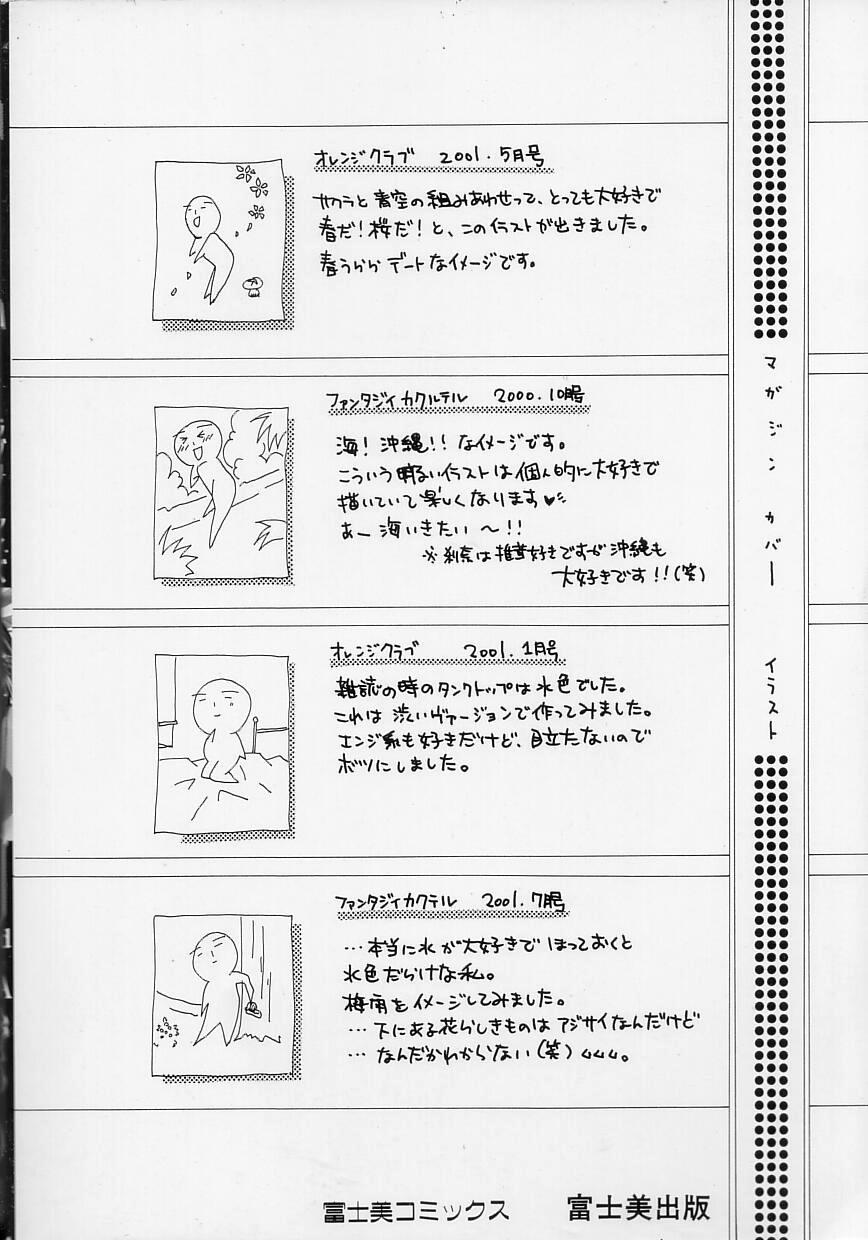 オレンジクラブ 2001.5月号
サクラと青空の組みあわせって、とっても大好きで
春だ!桜だ!と、このイラストが出きました。
春うらら デートなイメージです。
ファンタジィカクテル 2000.10月号
海!沖縄!!なイメージです。
こういう明るいイラストは個人的に大好きで
描いていて楽しくなります♥
あー 海いきたい〜!!
※刹奈は椎茸好きですが沖縄も
大好きです!!(笑)
オレンジクラブ 2001.1月号
雑誌の時のタンクトップは水色でした。
これは渋いヴァージョンで作ってみました。
エンジ系も好きだけど、目立たないので
ボツにしました。
ファンタジィカクテル 2001.7月号
…本当に水が大好きで ほっておくと
水色だらけな私。
梅雨をイメージしてみました。
…下にある花らしきものは アジサイなんだけど
…なんだかわからない(笑)
マガジン カバー イラスト
富士美コミックス 富士美出版